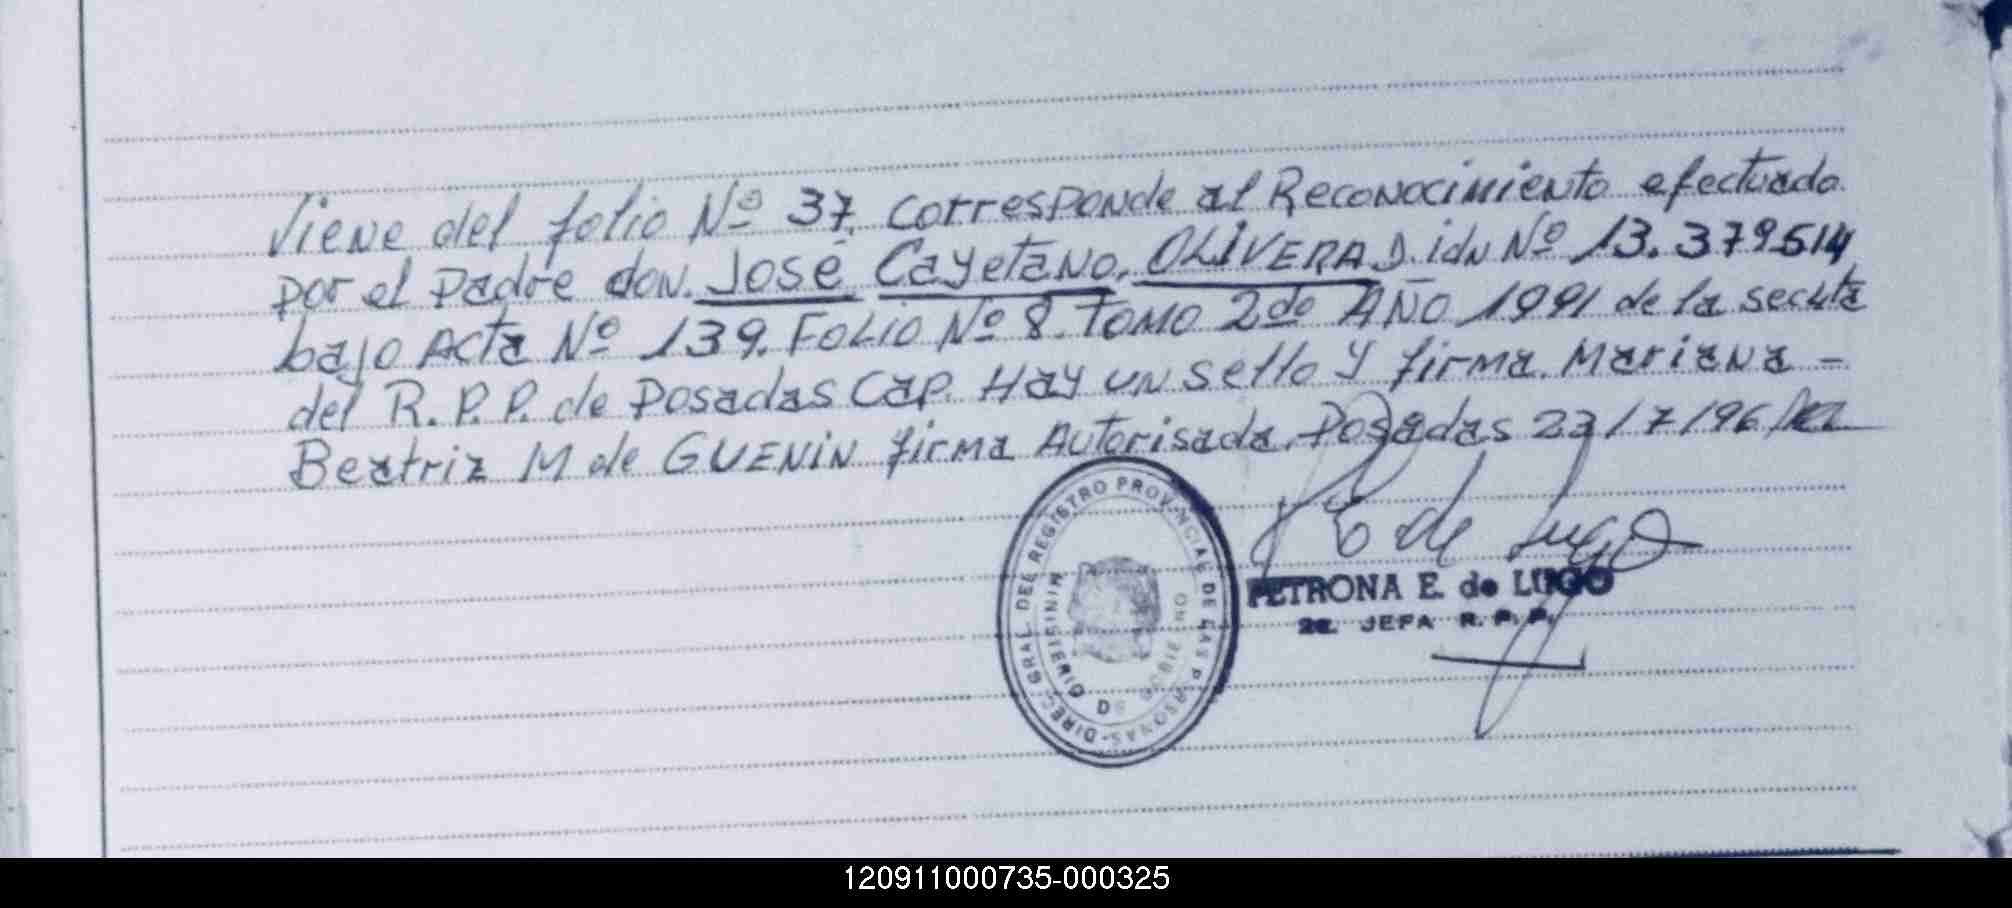 Viene del folio Nº 37. corresponde al Reconocimiento efectuado
por el Padre don. José Cayetano, OLIVERA D. idn Nº 13.379514
bajo Acta Nº 139. FOLIO Nº 8. TOMO 2do AÑO 1991 de la
del R.P.P. de Posadas Cap. Hay un sello y firma. Mariana -
Beatriz M de GUENIN firma Autorisada. Posadas 23/7/96
DIREC. GRAL. DEL REGISTRO PROVINCIAL DE LAS PERSONAS -
MINISTERIO DE GOBIERNO
E de Lugo
PETRONA E. de LUGO
2a. JEFA R.P.P.
120911000735-000325